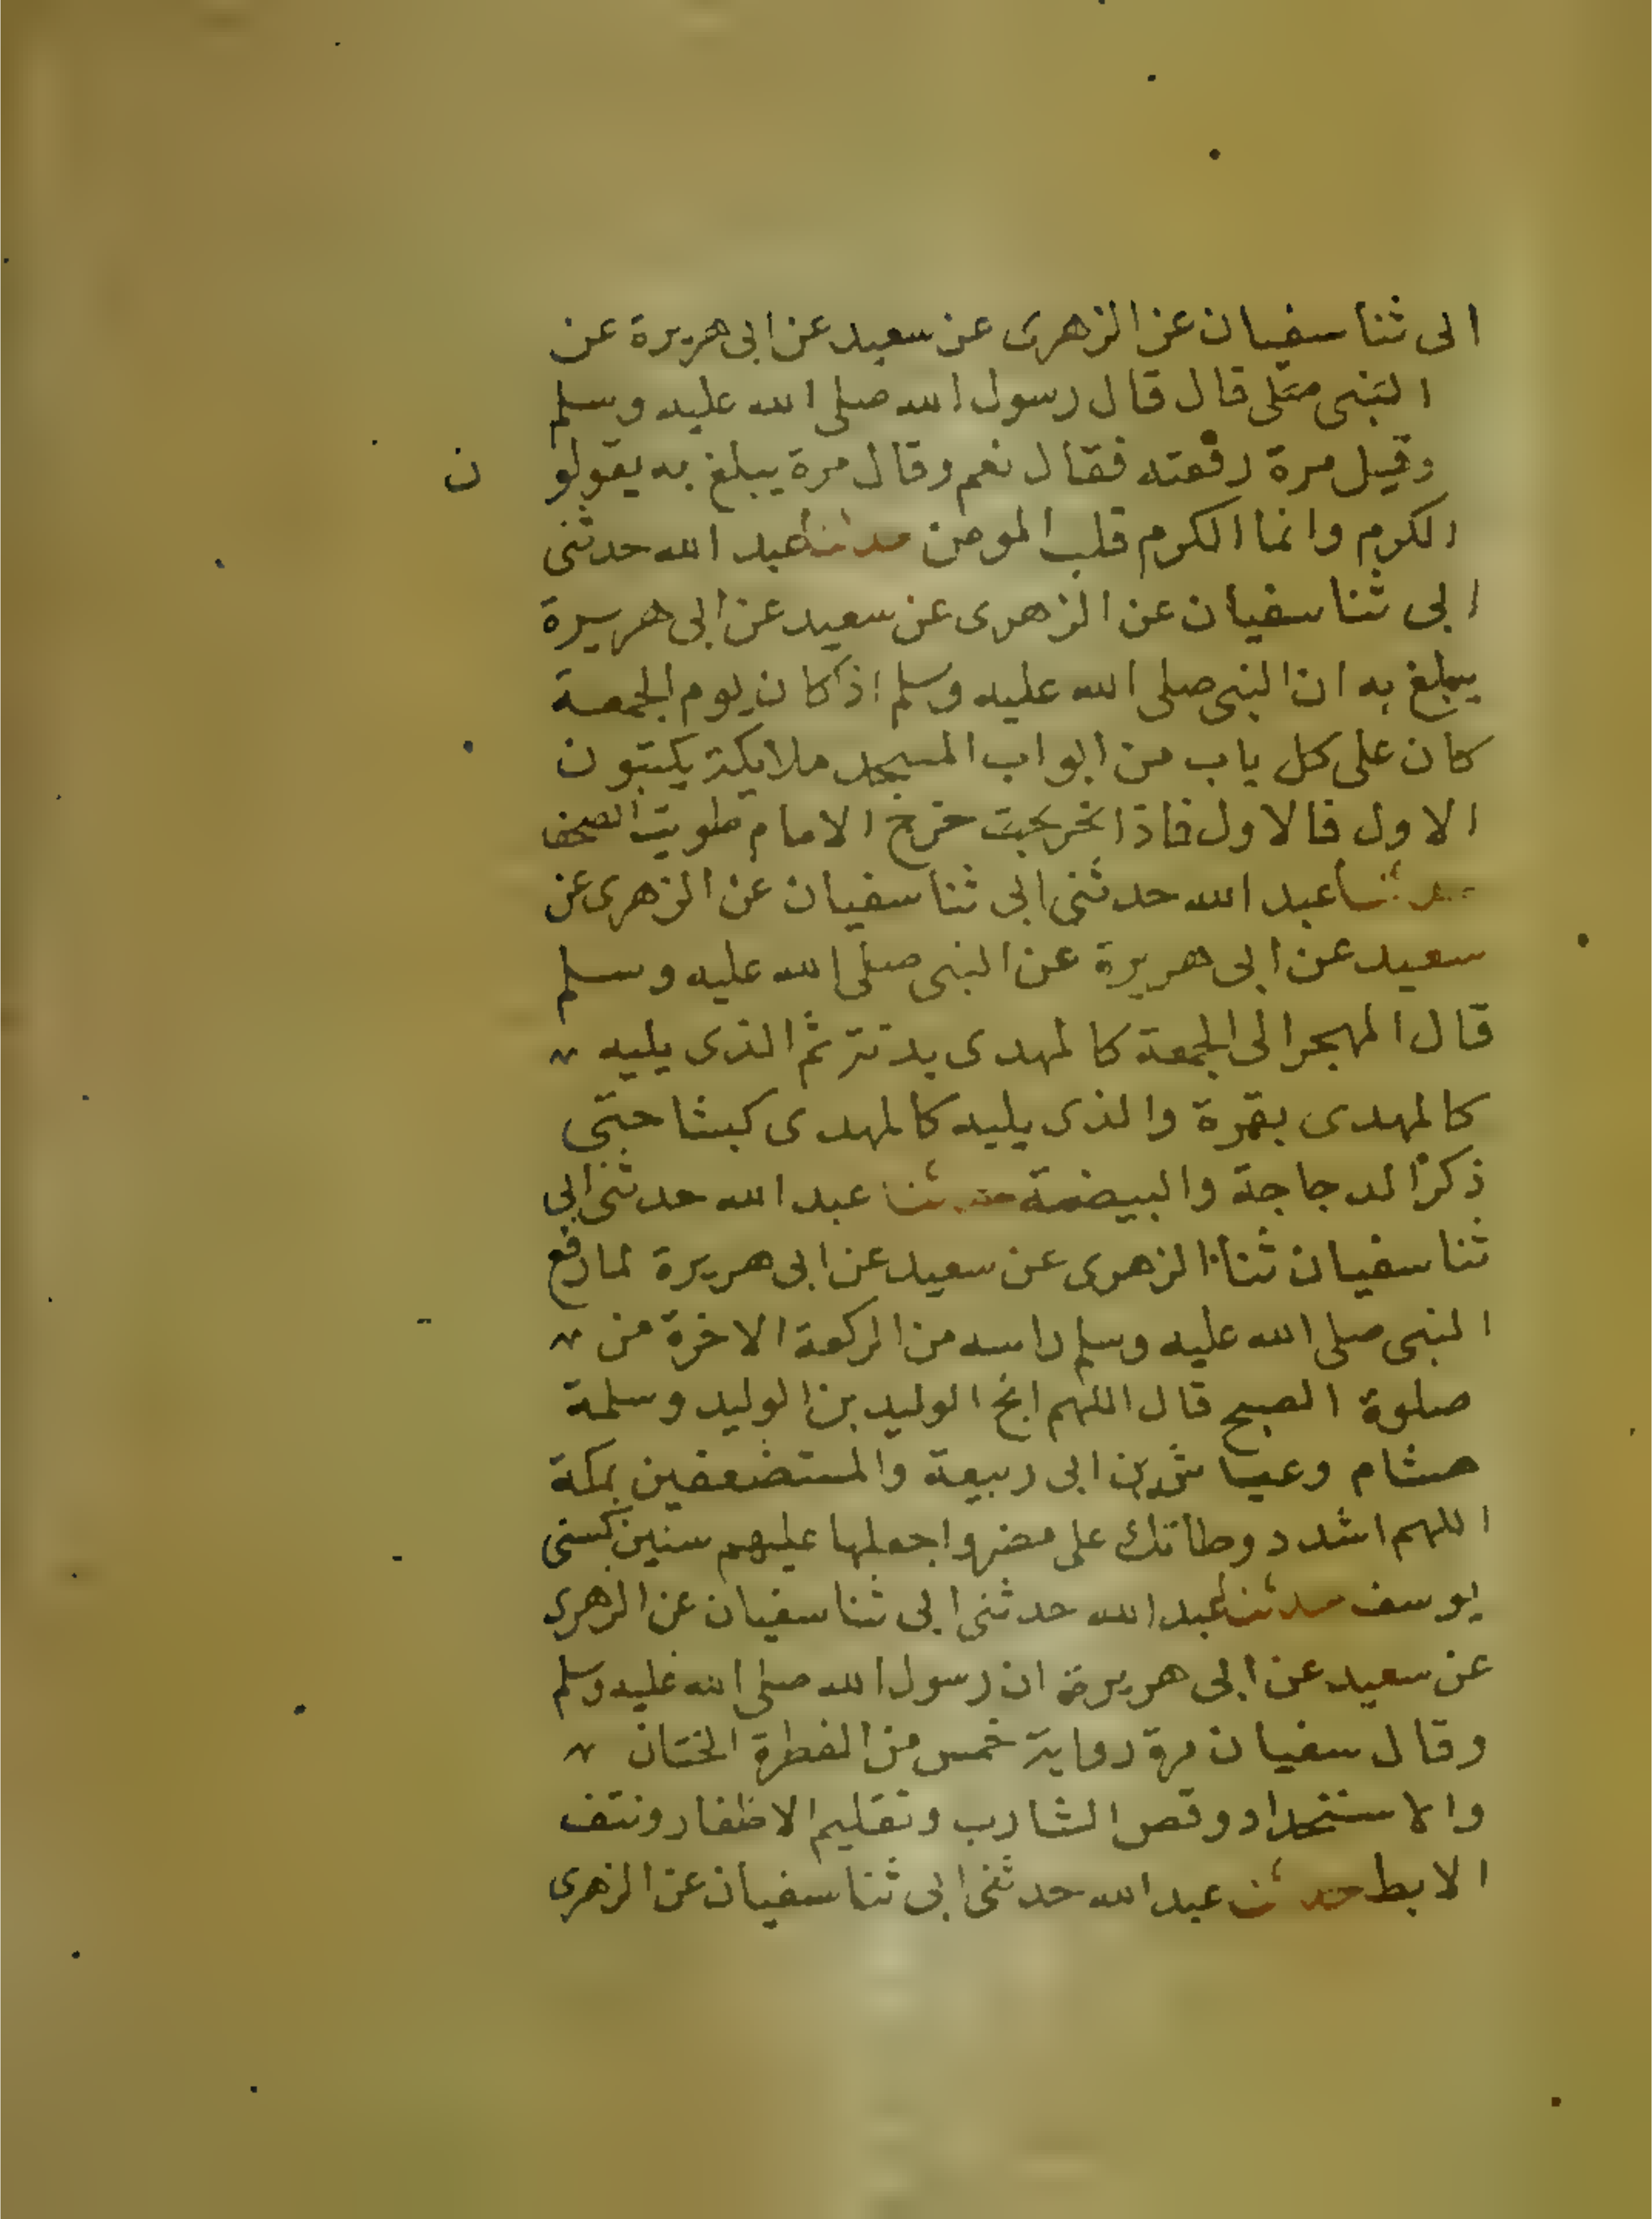 ابى ثنا سفيان عن الزهرى عن سعيد عن ابى هريرة عن
النبى صلى قال قال رسول الله صلى الله عليه وسلم
وقيل مرة رفعته فقال نعم وقال مرة يبلغ به يقولو ن
الكرم وانما الكرم قلب المومن حدثنا عبد الله حدثنى
ابى ثنا سفيان عن الزهرى عن سعيد عن ابى هريرة
يبلغ به ان النبى صلى الله عليه وسلم اذا كان يوم الجمعة
كان على كل باب من ابواب المسجد ملايكة يكتبون
الاول فالاول فاذا خرج الامام طويت الصحف
حدثنا عبد الله حدثنى ابى ثنا سفيان عن الزهرى عن
سعيد عن ابى هريرة عن النبى صلى الله عليه وسلم
قال المهجر الى الجمعة كالمهدى بدنة ثم الذى يليه
كالمهدى بقرة والذى يليه كالمهدى كبشا حتى
ذكر الدجاجة والبيضة حدثنا عبد الله حدثنى ابى
ثنا سفيان ثنا الزهرى عن سعيد عن ابى هريرة لما رفع
النبى صلى الله عليه وسلم راسه من الركعة الاخرة من
صلوة الصبح قال اللهم انج الوليد بن الوليد وسلمة
هشام وعياش بن ابى ربيعة والمستضعفين بمكة
اللهم اشدد وطاتك على مضر واجعلها عليهم سنين كسنى
يوسف حدثنا عبد الله حدثنى ابى ثنا سفيان عن الزهرى
عن سعيد عن ابى هريرة ان رسول الله صلى الله عليه وسلم
وقال سفيان مرة رواية خمس من الفطرة الختان
والاستحداد وقص الشارب وتقليم الاظفار ونتف
الابط حدثنا عبد الله حدثنى ابى ثنا سفيان عن الزهرى